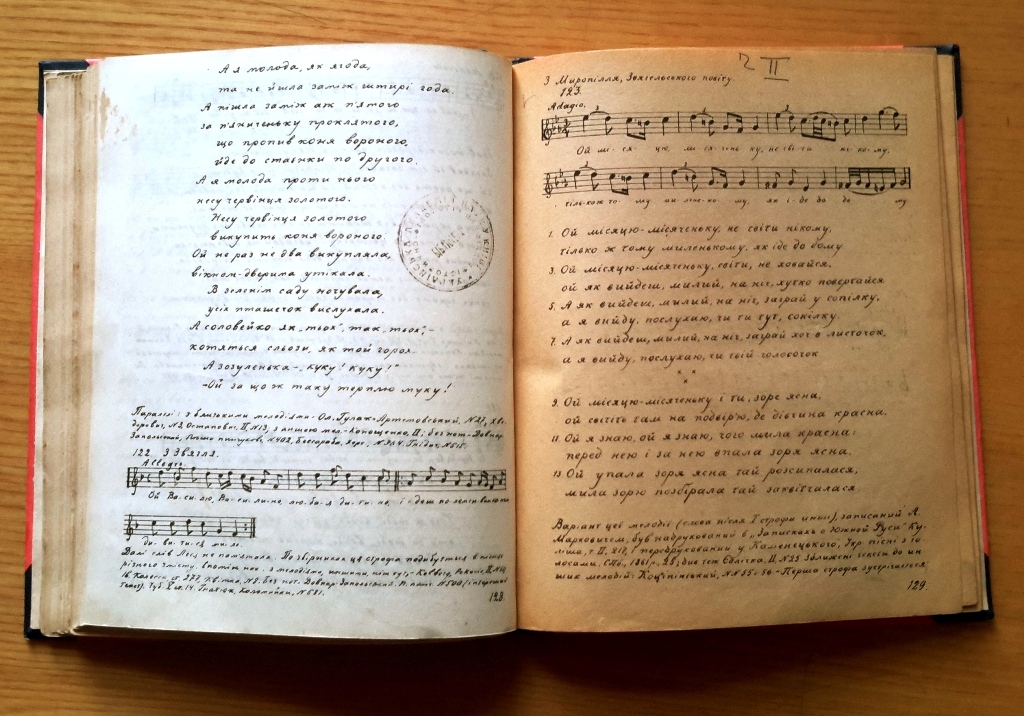 А я молода, як ягода,
та не йшла заміж штирі года.
А пішла заміж аж п'ятого
за п'яниченьку проклятого,
що пропив коня вороного,
йде до стаєнки по другого.
А я молода проти нього
несу червінця золотого.
Несу червінця золотого
викупить коня вороного
Ой не раз не два викупляла,
вікном-дверима утікала.
В зеленім саду ночувала,
усіх пташечок вислухала.
А соловейко як "тьох", так "тьох",
котяться сльози, як той горох.
А зозуленька - "куку! куку!"
-Ой за що ж таку терплю муку!
Паралелі: з близькими мелодіями - Ол. Гулак-Артемовський, №27,
№2, II, №13, з иншою мел.- Конощенко, II; без нот-Довнар
Запольский,
122. З Звягля.
Allegro.
Ой Ва-си-лю, Ва-си-ли-не лю-ба-я ди-ти-но, і
ди-ви-ти-ся ми-ло.
Далі слів Леся не пам'ятала. По збірниках ця строфа
різного змісту.
128
2 II
З Миропілля, Звягельського повіту.
123.
Adagio.
Ой мі-ся-цю, мі-ся-чень-ку, не сві-ти ні-ко-му,
тіль-ко ж то-му ми-лень-ко-му, як і-де до до му
1. Ой місяцю-місяченьку, не світи нікому,
тілько ж тому миленькому, як іде до дому
3. Ой місяцю-місяченьку, світи, не ховайся.
ой як вийдеш, милий, на ніч, хутко повертайся
5. А як вийдеш, милий, на ніч, заграй у сопілку,
а я вийду, послухаю, чи ти тут, сокілку.
7. А як вийдеш, милий, на ніч, заграй хоч в листочок,
а я вийду, послухаю, чи твій голосочок
* * *
9. Ой місяцю-місяченьку і ти, зоре ясна,
ой світіте там на подвір'ю, де дівчина красна.
11. Ой я знаю, ой я знаю, чого мила красна:
перед нею і за нею впала зоря ясна.
13. Ой упала зоря ясна тай розсипалася,
мила зорю позбірала тай заквітчалася
Варіант цеї мелодії (слова після I строфи инші), записаний А.
Марковичем, був надрукований в "Записках о Южной Руси" Ку-
ліша, т. II, і передрукований у Каменецького, Укр. пісні з го-
лосами. СПб, 1861 р., 25;
ших мелодій: Коціпінський, №№55 і 56.- Перша строфа зустрічається
129